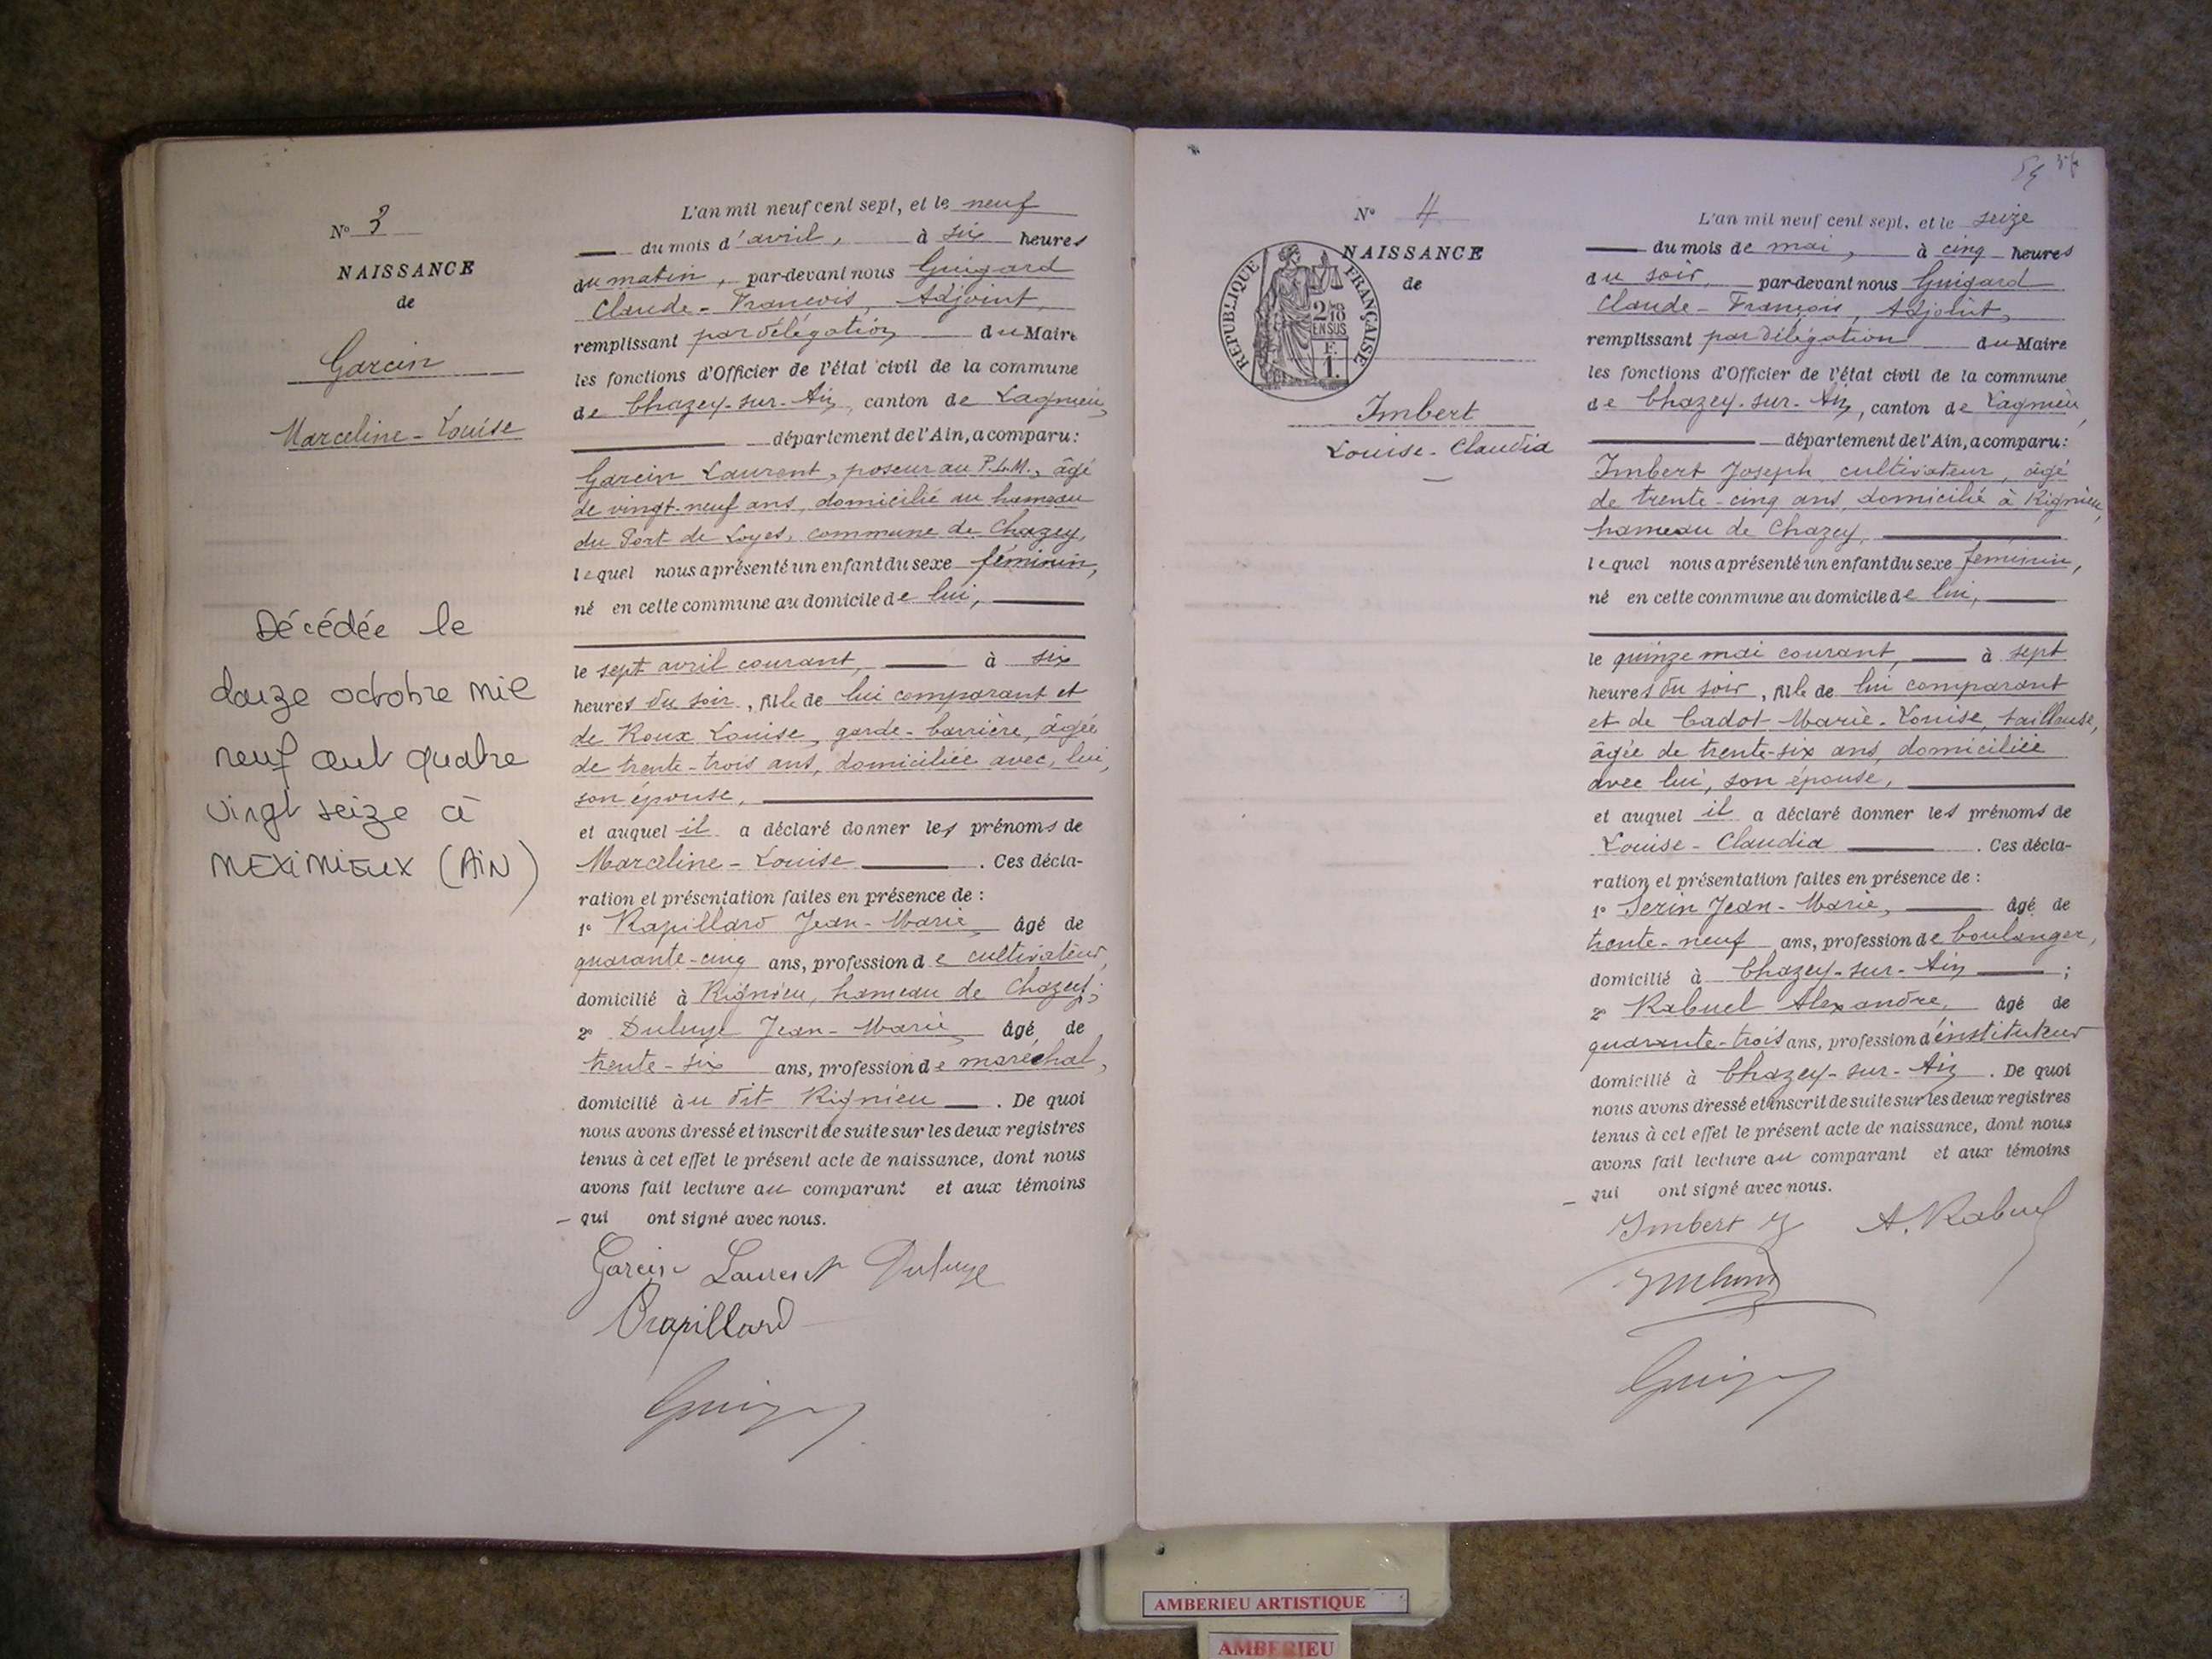 N° 3
NAISSANCE
de
Garcin
Marceline - Louise
Décédée le
douze octobre mil
neuf cent quatre
vingt seize à
MEXIMIEUX (AIN)
L'an mil neuf cent sept, et le neuf
du mois d'avril, à six heures
du matin, par-devant nous Guigard
Claude - François, Adjoint,
remplissant par délégation du Maire
les fonctions d'Officier de l'état civil de la commune
de Chazey-sur-Ain, canton de Lagnieu,
département de l'Ain, a comparu:
Garcin Laurent, poseur au P.L.M., âgé
de vingt-neuf ans, domicilié au hameau
du Port de Loyes, commune de Chazey,
lequel nous a présenté un enfant du sexe féminin,
né en cette commune au domicile de lui,
le sept avril courant, à six
heures du soir, fille de lui comparant et
de Roux Louise, garde-barrière, âgée
de trente-trois ans, domiciliée avec lui,
son épouse,
et auquel il a déclaré donner les prénoms de
Marceline - Louise. Ces décla-
ration et présentation faites en présence de :
1° Rapillard Jean-Marie âgé de
quarante-cinq ans, profession de cultivateur,
domicilié à Rignieu, hameau de Chazey;
2° Duluye Jean-Marie âgé de
trente-six ans, profession de maréchal,
domicilié au dit Rignieu. De quoi
nous avons dressé et inscrit de suite sur les deux registres
tenus à cet effet le présent acte de naissance, dont nous
avons fait lecture au comparant et aux témoins
qui ont signé avec nous.
Garcin Laurent Duluye
Rapillard
N° 4
NAISSANCE
de
RÉPUBLIQUE FRANÇAISE
2/10
EN SUS
F.
1.
Imbert
Louise - Claudia
L'an mil neuf cent sept, et le seize
du mois de mai, à cinq heures
du soir, par-devant nous Guigard
Claude - François, Adjoint,
remplissant par délégation du Maire
les fonctions d'Officier de l'état civil de la commune
de Chazey-sur-Ain, canton de Lagnieu,
département de l'Ain, a comparu:
Imbert Joseph, cultivateur, âgé
de trente-cinq ans, domicilié à Rignieu,
hameau de Chazey,
lequel nous a présenté un enfant du sexe féminin,
né en cette commune au domicile de lui,
le quinze mai courant, à sept
heures du soir, fille de lui comparant
et de Cadot Marie-Louise, tailleuse,
âgée de trente-six ans, domiciliée
avec lui, son épouse,
et auquel il a déclaré donner les prénoms de
Louise - Claudia. Ces décla-
ration et présentation faites en présence de :
1° Serin Jean-Marie, âgé de
trente-neuf ans, profession de boulanger,
domicilié à Chazey-sur-Ain ;
2° Rabuel Alexandre, âgé de
quarante-trois ans, profession d'instituteur
domicilié à Chazey-sur-Ain. De quoi
nous avons dressé et inscrit de suite sur les deux registres
tenus à cet effet le présent acte de naissance, dont nous
avons fait lecture au comparant et aux témoins
qui ont signé avec nous.
Imbert J A. Rabuel
AMBERIEU ARTISTIQUE
AMBERIEU